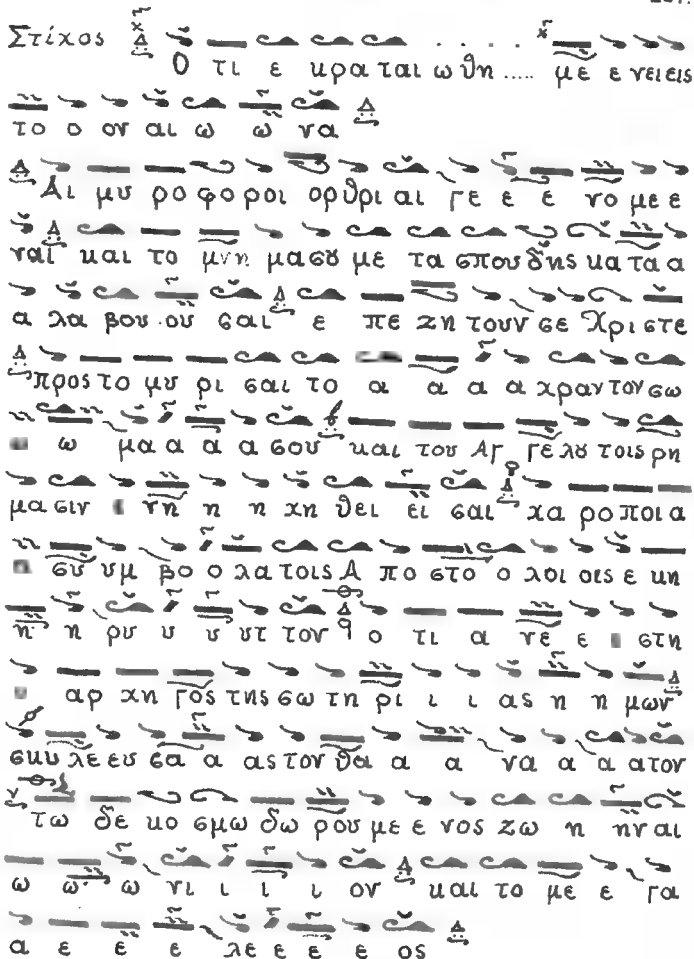 Στίχος Ο τι ε κρα ται ω θη ..... με ε νει εις
το ο ον αι ω ω να
Αι μυ ρο φο ροι ορ θρι αι γε ε ε νο με ε
ναι και το μνη μα σου με τα σπου δης κα τα α
α λα βου ου σαι ε πε ζη τουν σε Χρι στε
προς το μυ ρι σαι το α α α α χραν τον σω
ω μα α α α σου και του Αγ γε λου τοις ρη
μα σιν νη η η χη θει ει σαι χα ρο ποι α
συ υμ βο ο λα τοις Α πο στο ο λοι οις ε κη
η η ρυ υ υ υτ τον ο τι α νε ε στη
αρ χη γος της σω τη ρι ι ι ας η η μων
σκυ λε ευ σα α ας τον θα α α να α α α τον
τω δε κο σμω δω ρου με ε νος ζω η ην αι
ω ω ω νι ι ι ι ον και το με ε γα
α ε ε ε λε ε ε ε ος